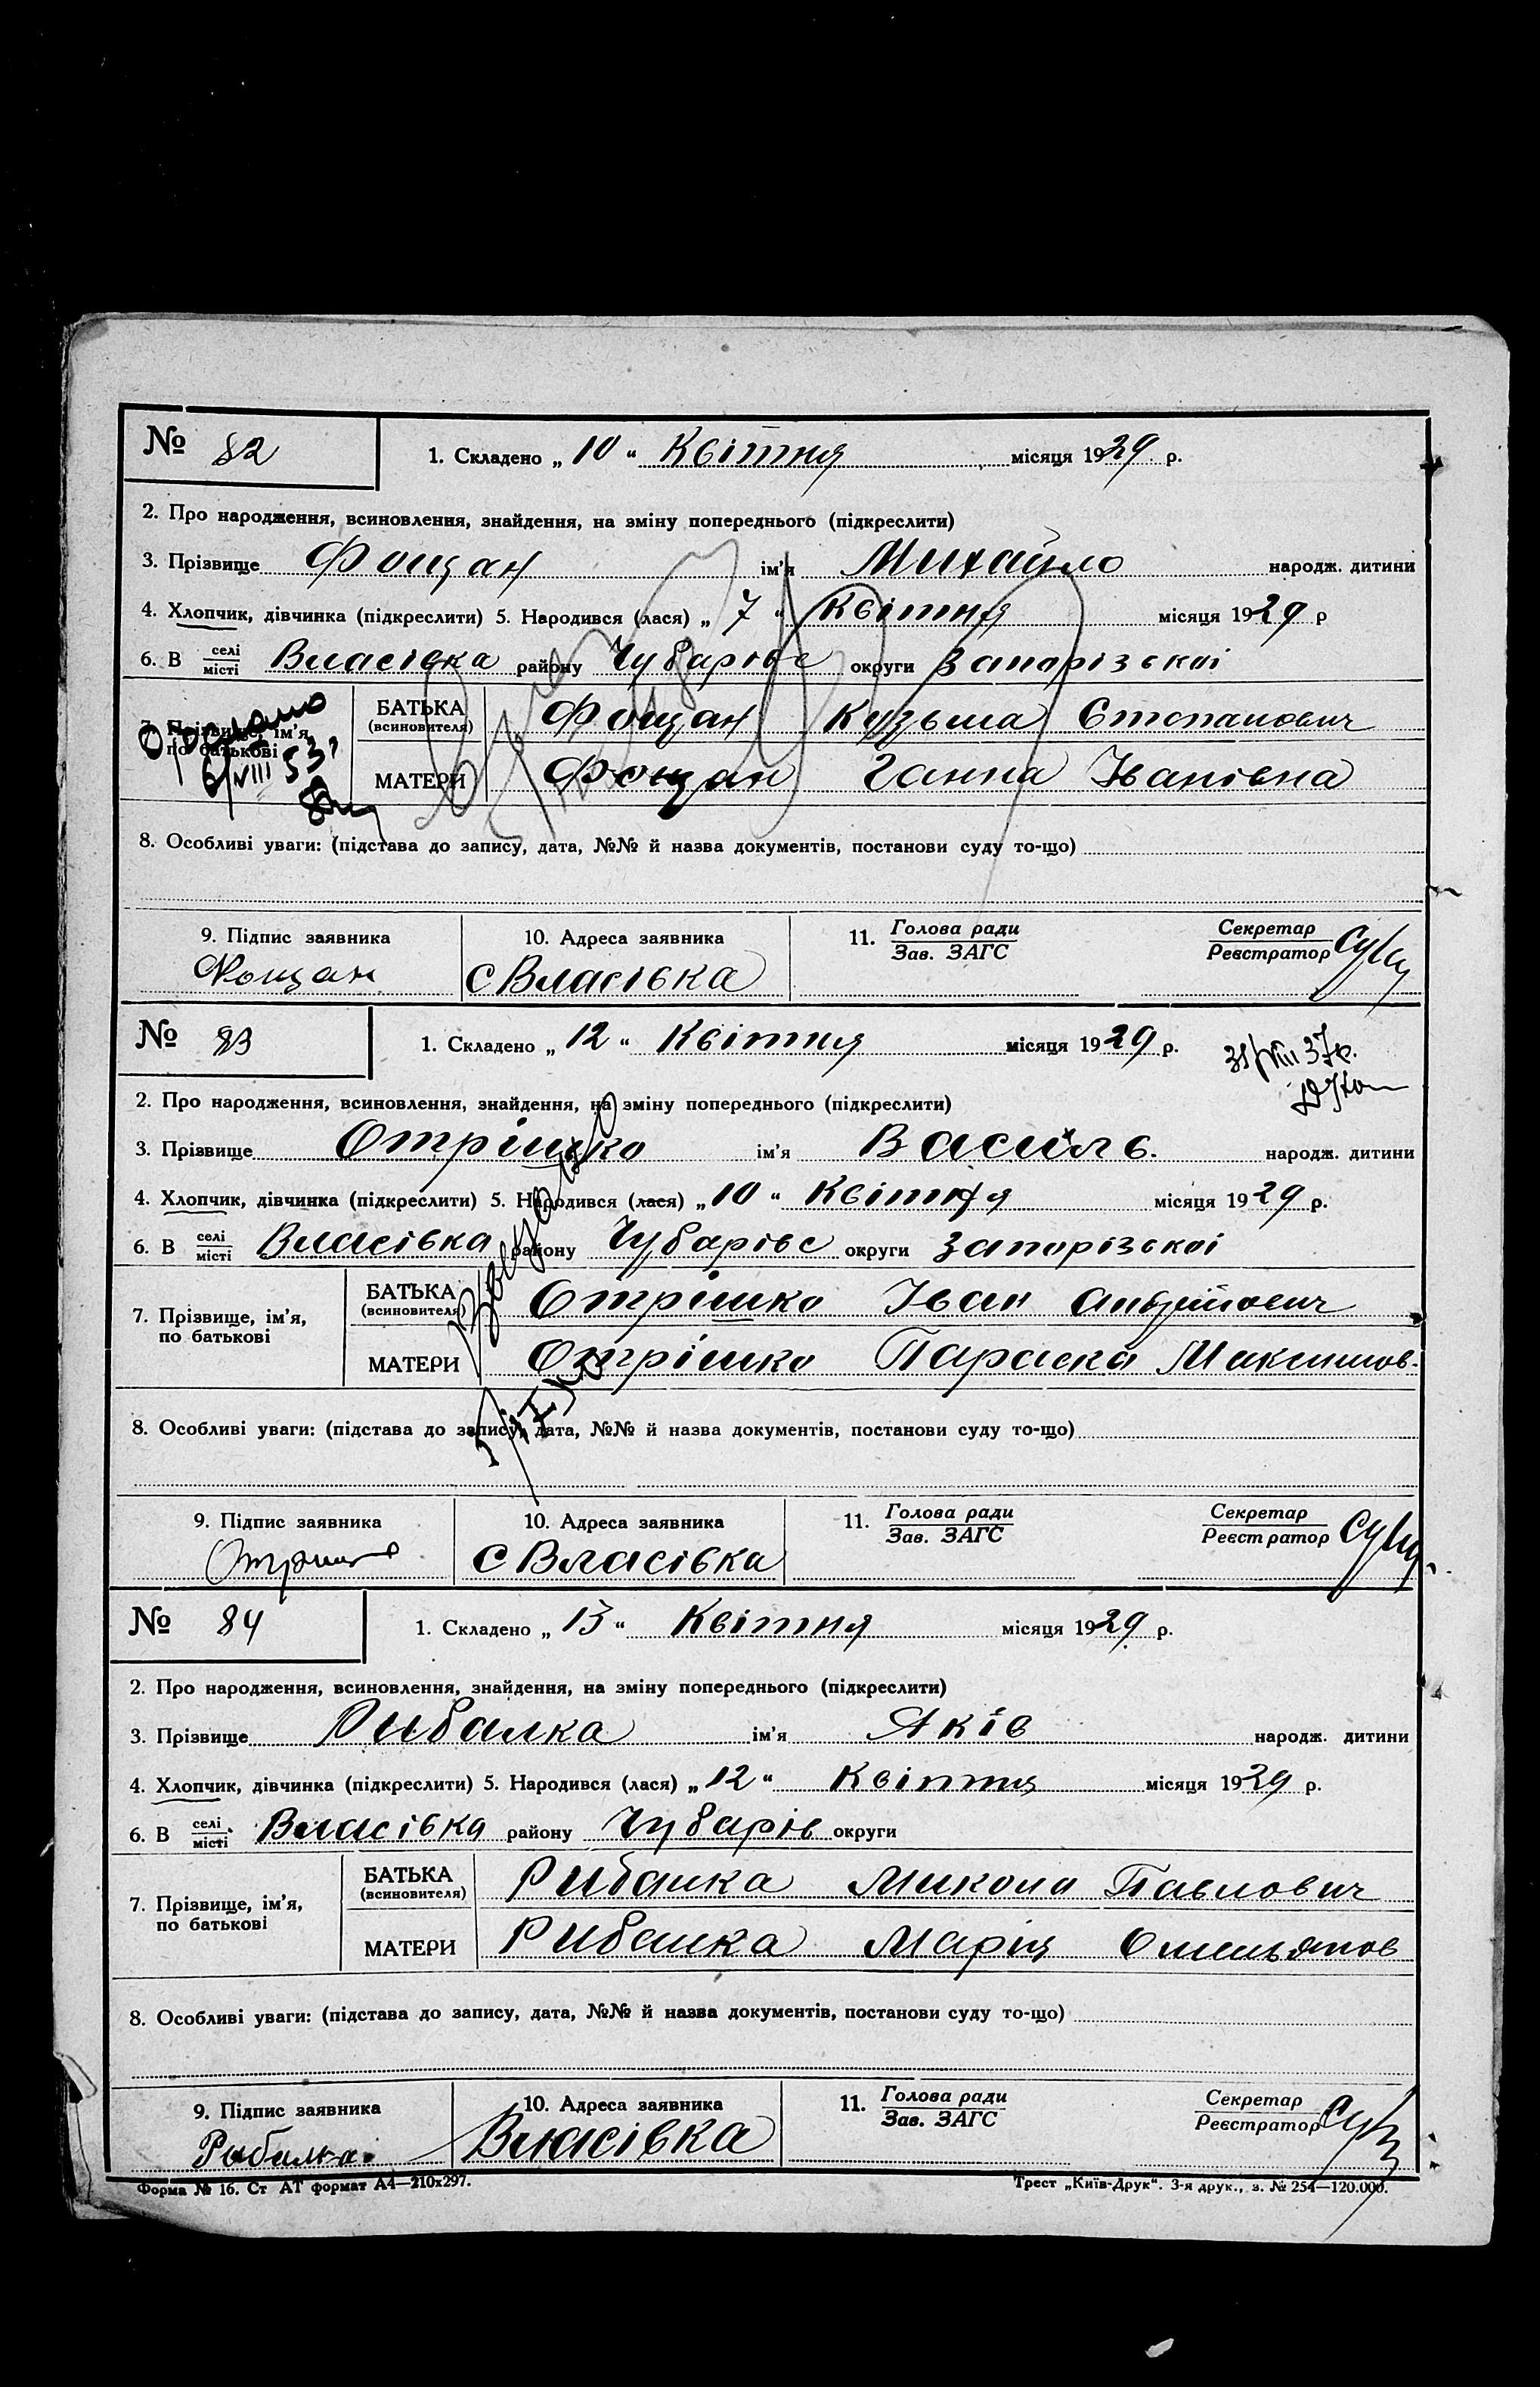 № 82 1. Складено „ 10 “ Квітня місяця 1929 р.
2. Про народження, всиновлення, знайдення, на зміну попереднього (підкреслити)
3. Прізвище Фощан ім'я Михайло народж. дитини
4. Хлопчик, дівчинка (підкреслити) 5. Народився (лася) „ 7 “ Квітня місяця 1929 р
6. В селі місті Власівка району Чубарівс округи Запорізькоі
7. Прізвище, ім'я, по батькові
6/VIII 53
БАТЬКА (всиновителя) Фощан Кузьма Степанович
МАТЕРИ Фощан Ганна Іванівна
8. Особливі уваги: (підстава до запису, дата, №№ й назва документів, постанови суду то-що)
9. Підпис заявника 10. Адреса заявника 11. Голова ради Зав. ЗАГС Секретар Реєстратор
Фощан с Власівка
№ 83 1. Складено „ 12 “ Квітня місяця 1929 р. 31/VIII 37р.
2. Про народження, всиновлення, знайдення, на зміну попереднього (підкреслити)
3. Прізвище Отрішко ім'я Василь. народж. дитини
4. Хлопчик, дівчинка (підкреслити) 5. Народився (лася) „ 10 “ Квітня місяця 1929 р.
6. В селі місті Власівка району Чубарівс округи Запорізькоі
7. Прізвище, ім'я, по батькові
БАТЬКА (всиновителя) Отрішко Іван Андрійович
МАТЕРИ Отрішко Параска Максимов-
8. Особливі уваги: (підстава до запису, дата, №№ й назва документів, постанови суду то-що)
9. Підпис заявника 10. Адреса заявника 11. Голова ради Зав. ЗАГС Секретар Реєстратор
с Власівка
№ 84 1. Складено „ 13 “ Квітня місяця 1929 р.
2. Про народження, всиновлення, знайдення, на зміну попереднього (підкреслити)
3. Прізвище Рибалка ім'я Яків народж. дитини
4. Хлопчик, дівчинка (підкреслити) 5. Народився (лася) „ 12 “ Квітня місяця 1929 р.
6. В селі місті Власівка району Чубарів округи
7. Прізвище, ім'я, по батькові
БАТЬКА (всиновителя) Рибалка Микола Павлович
МАТЕРИ Рибалка Марія Омельянов
8. Особливі уваги: (підстава до запису, дата, №№ й назва документів, постанови суду то-що)
9. Підпис заявника 10. Адреса заявника 11. Голова ради Зав. ЗАГС Секретар Реєстратор
Рибалка Власівка
Форма № 16. Ст АТ формат А4—210х297. Трест „Київ-Друк“. 3-я друк., з. № 254—120.000.